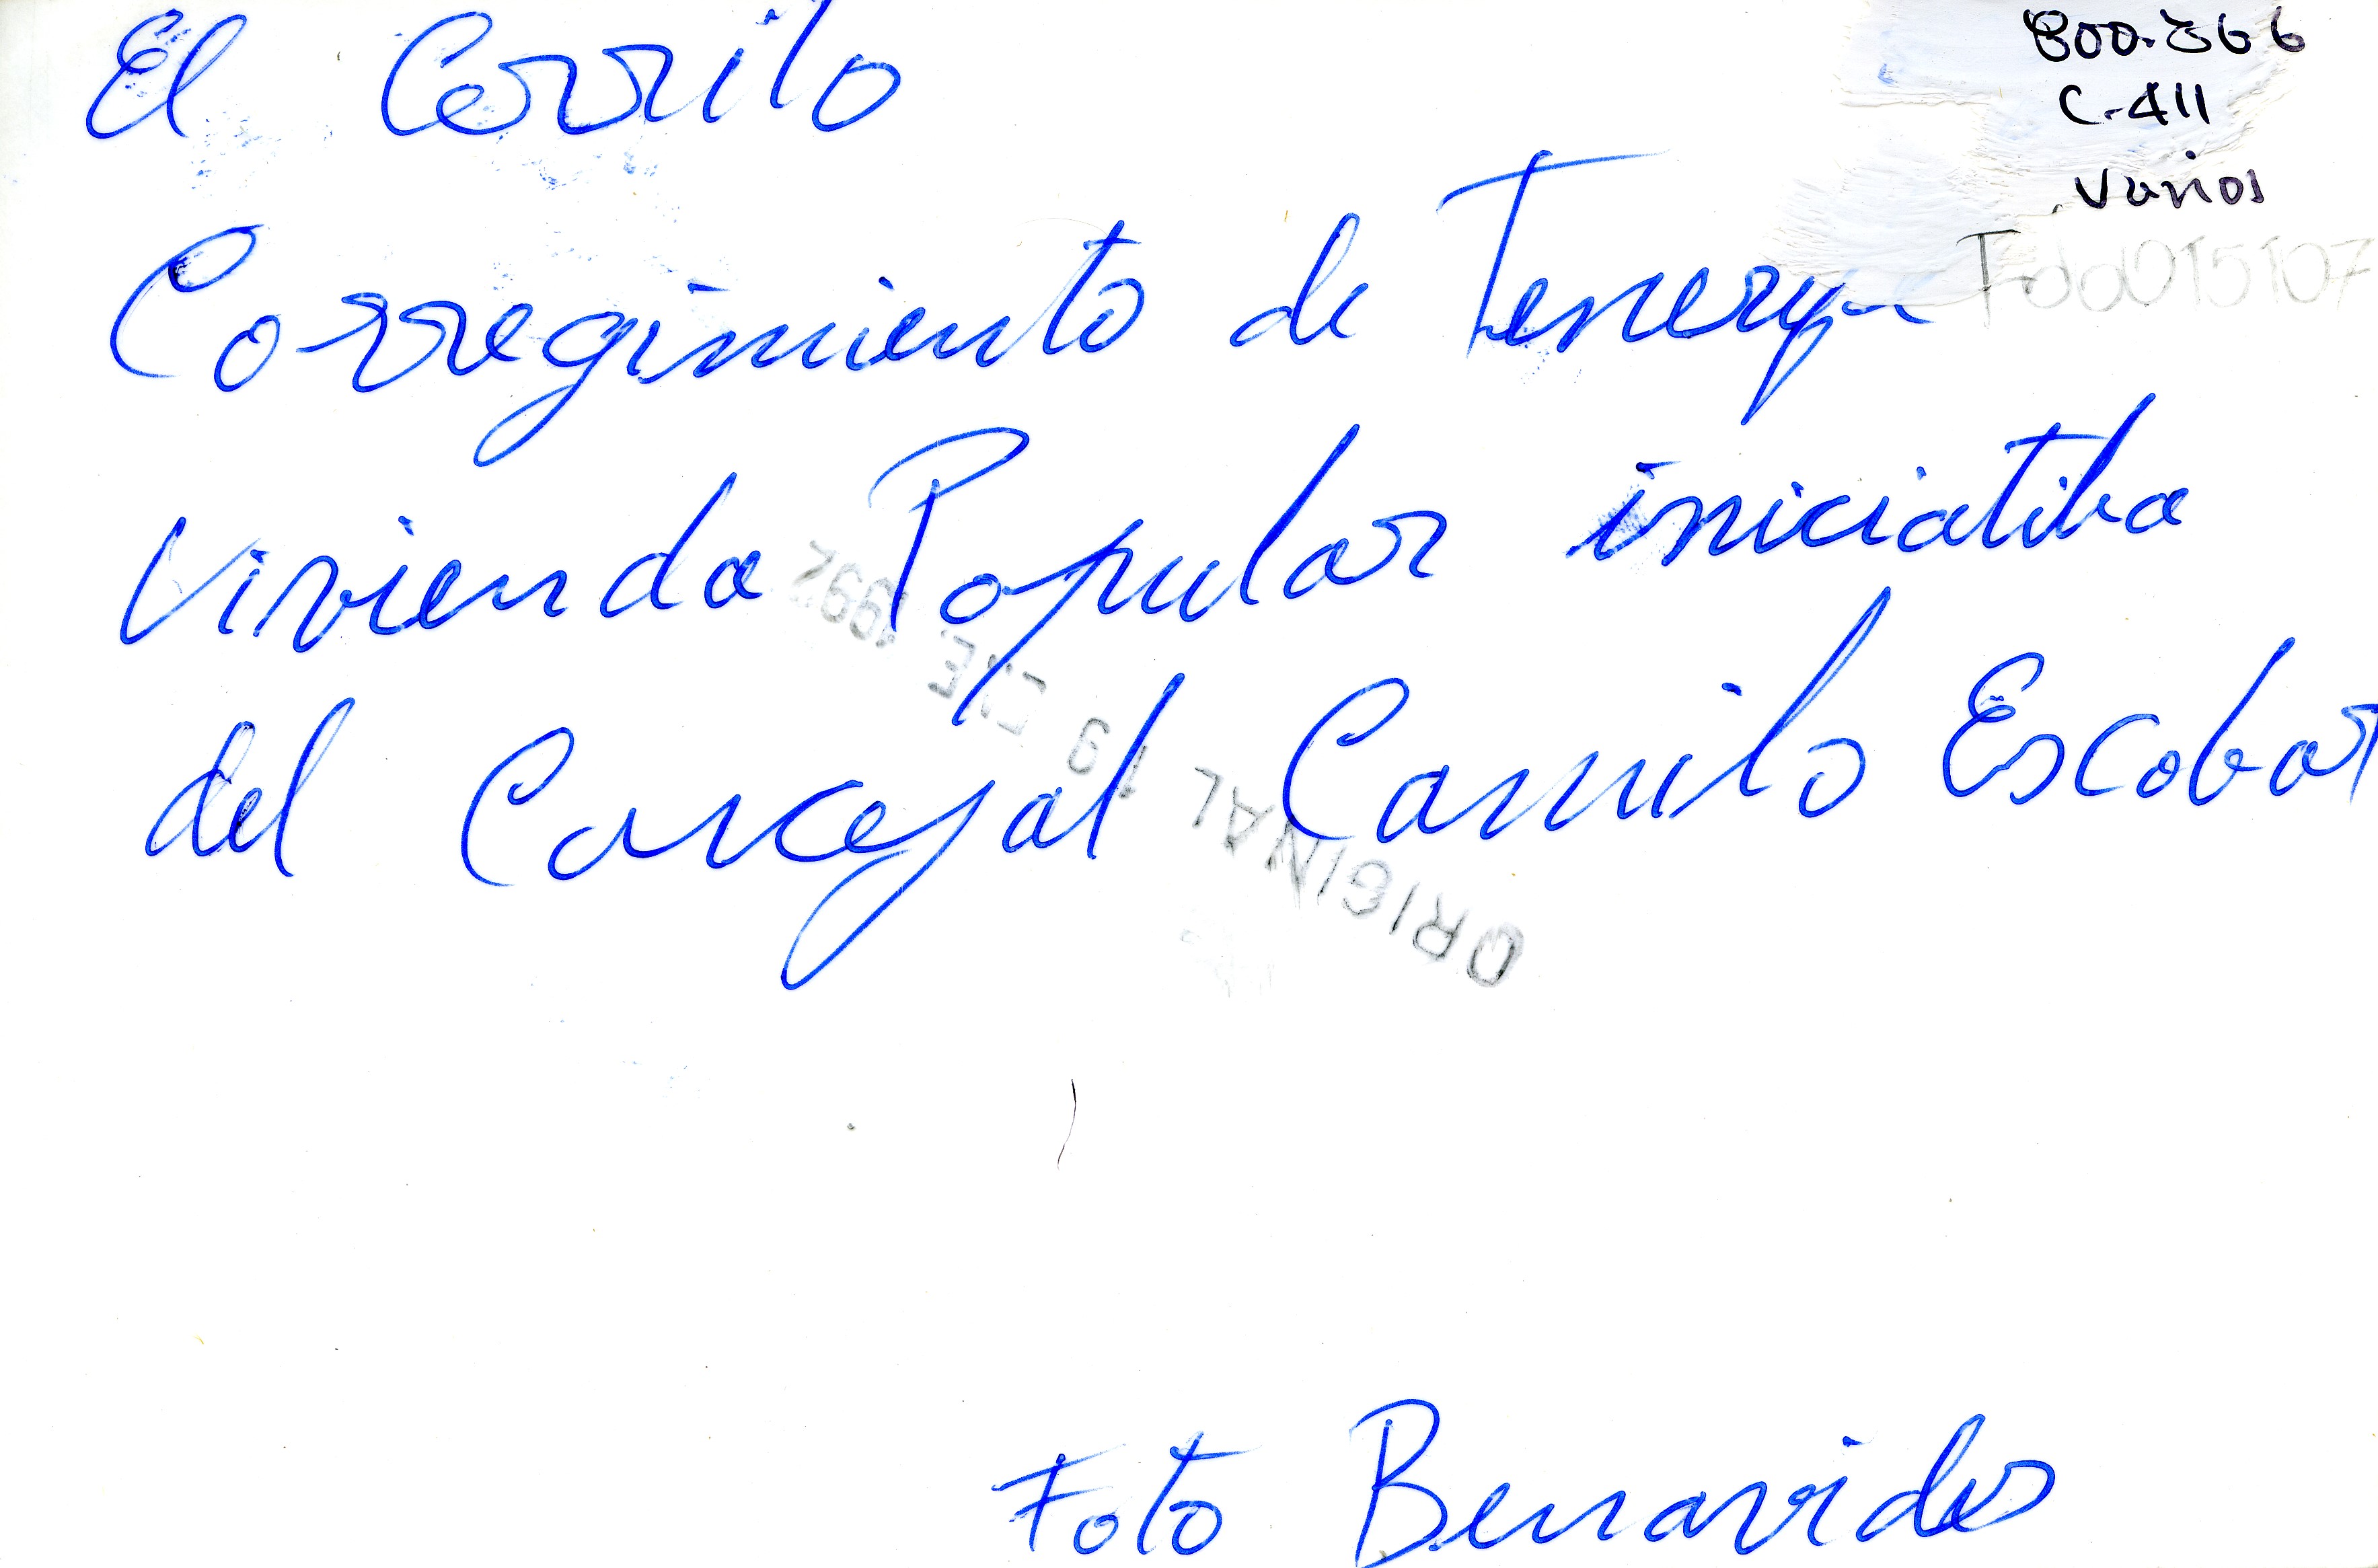 El Cerrito
800.366
C-411
Varios
Corregimiento de Tenerife
Fdo015107
Vivienda Popular iniciatiba
del Concejal Camilo Escobar
ORIGINAL 19 ENE. 1992
Foto Benavides